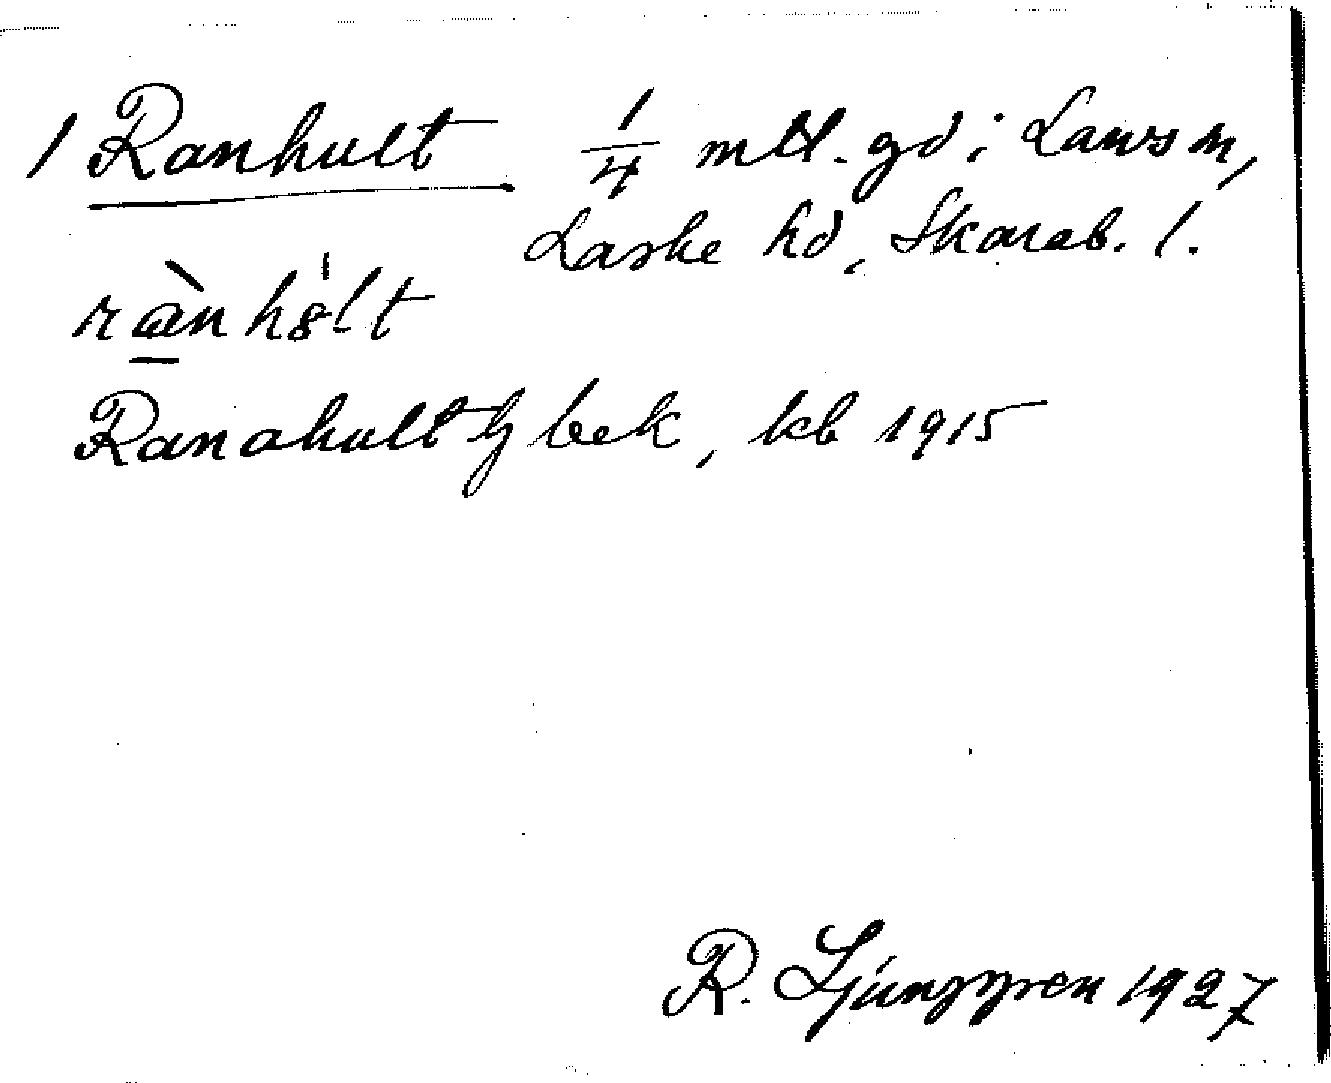 1 Ranhult 1/4 mtl. gd i Lawsm,
Laske hd, Skarab. l.
Ranahult bek, kb 1915
R. Ljunggren 1927